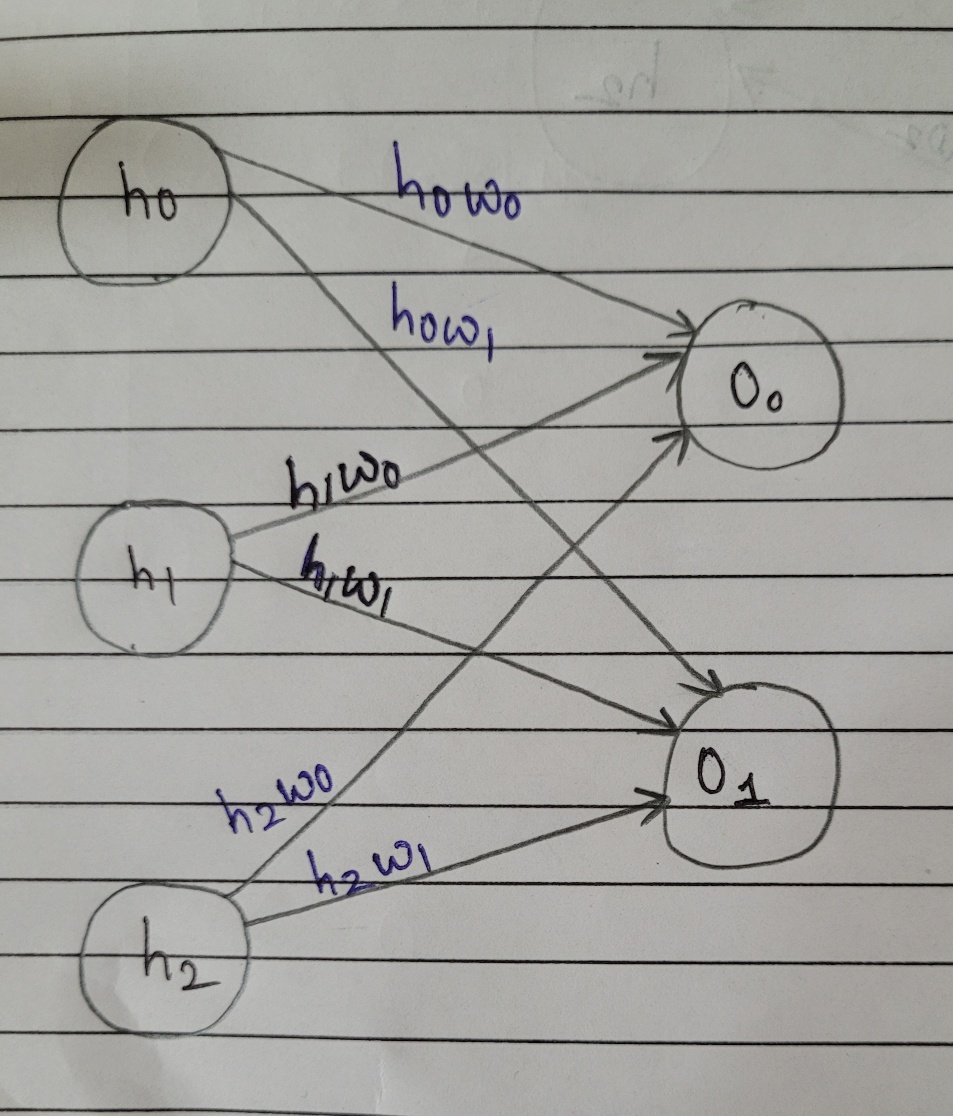 h0
h0w0
h0w1
O0
h1w0
h1
h1w1
O1
h2w0
h2w1
h2